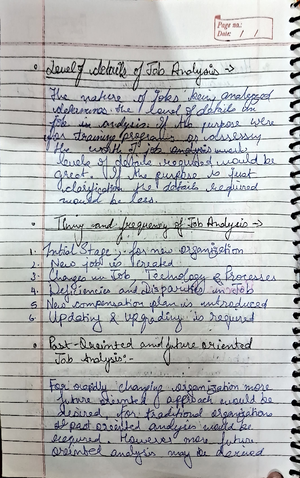 Page no.:
Date: / /
• Level of details of Job Analysis →
The nature of jobs been analyzed
determines the level of details in
job in analysis. If the purpose were
for training programs or assessing
the worth of job analysis work
levels of details required would be
great. If the purpose is just
clarification the details required
would be less.
• Timy and frequency of Job Analysis →
1. Initial Stage, for new organization
2. New job is created
3. Changes in Job, Technology & Processes
4. Deficiencies and Disparities in Job
5. New compensation plan is introduced
6. Updating & Upgrading is required
• Past-Oreinted and future oriented
Job Analysis:-
For rapidly changing organization more
future oriented approach would be
desired, for traditional organizations
past oriented analysis would be
required. However more future
oriented analysis may be derived